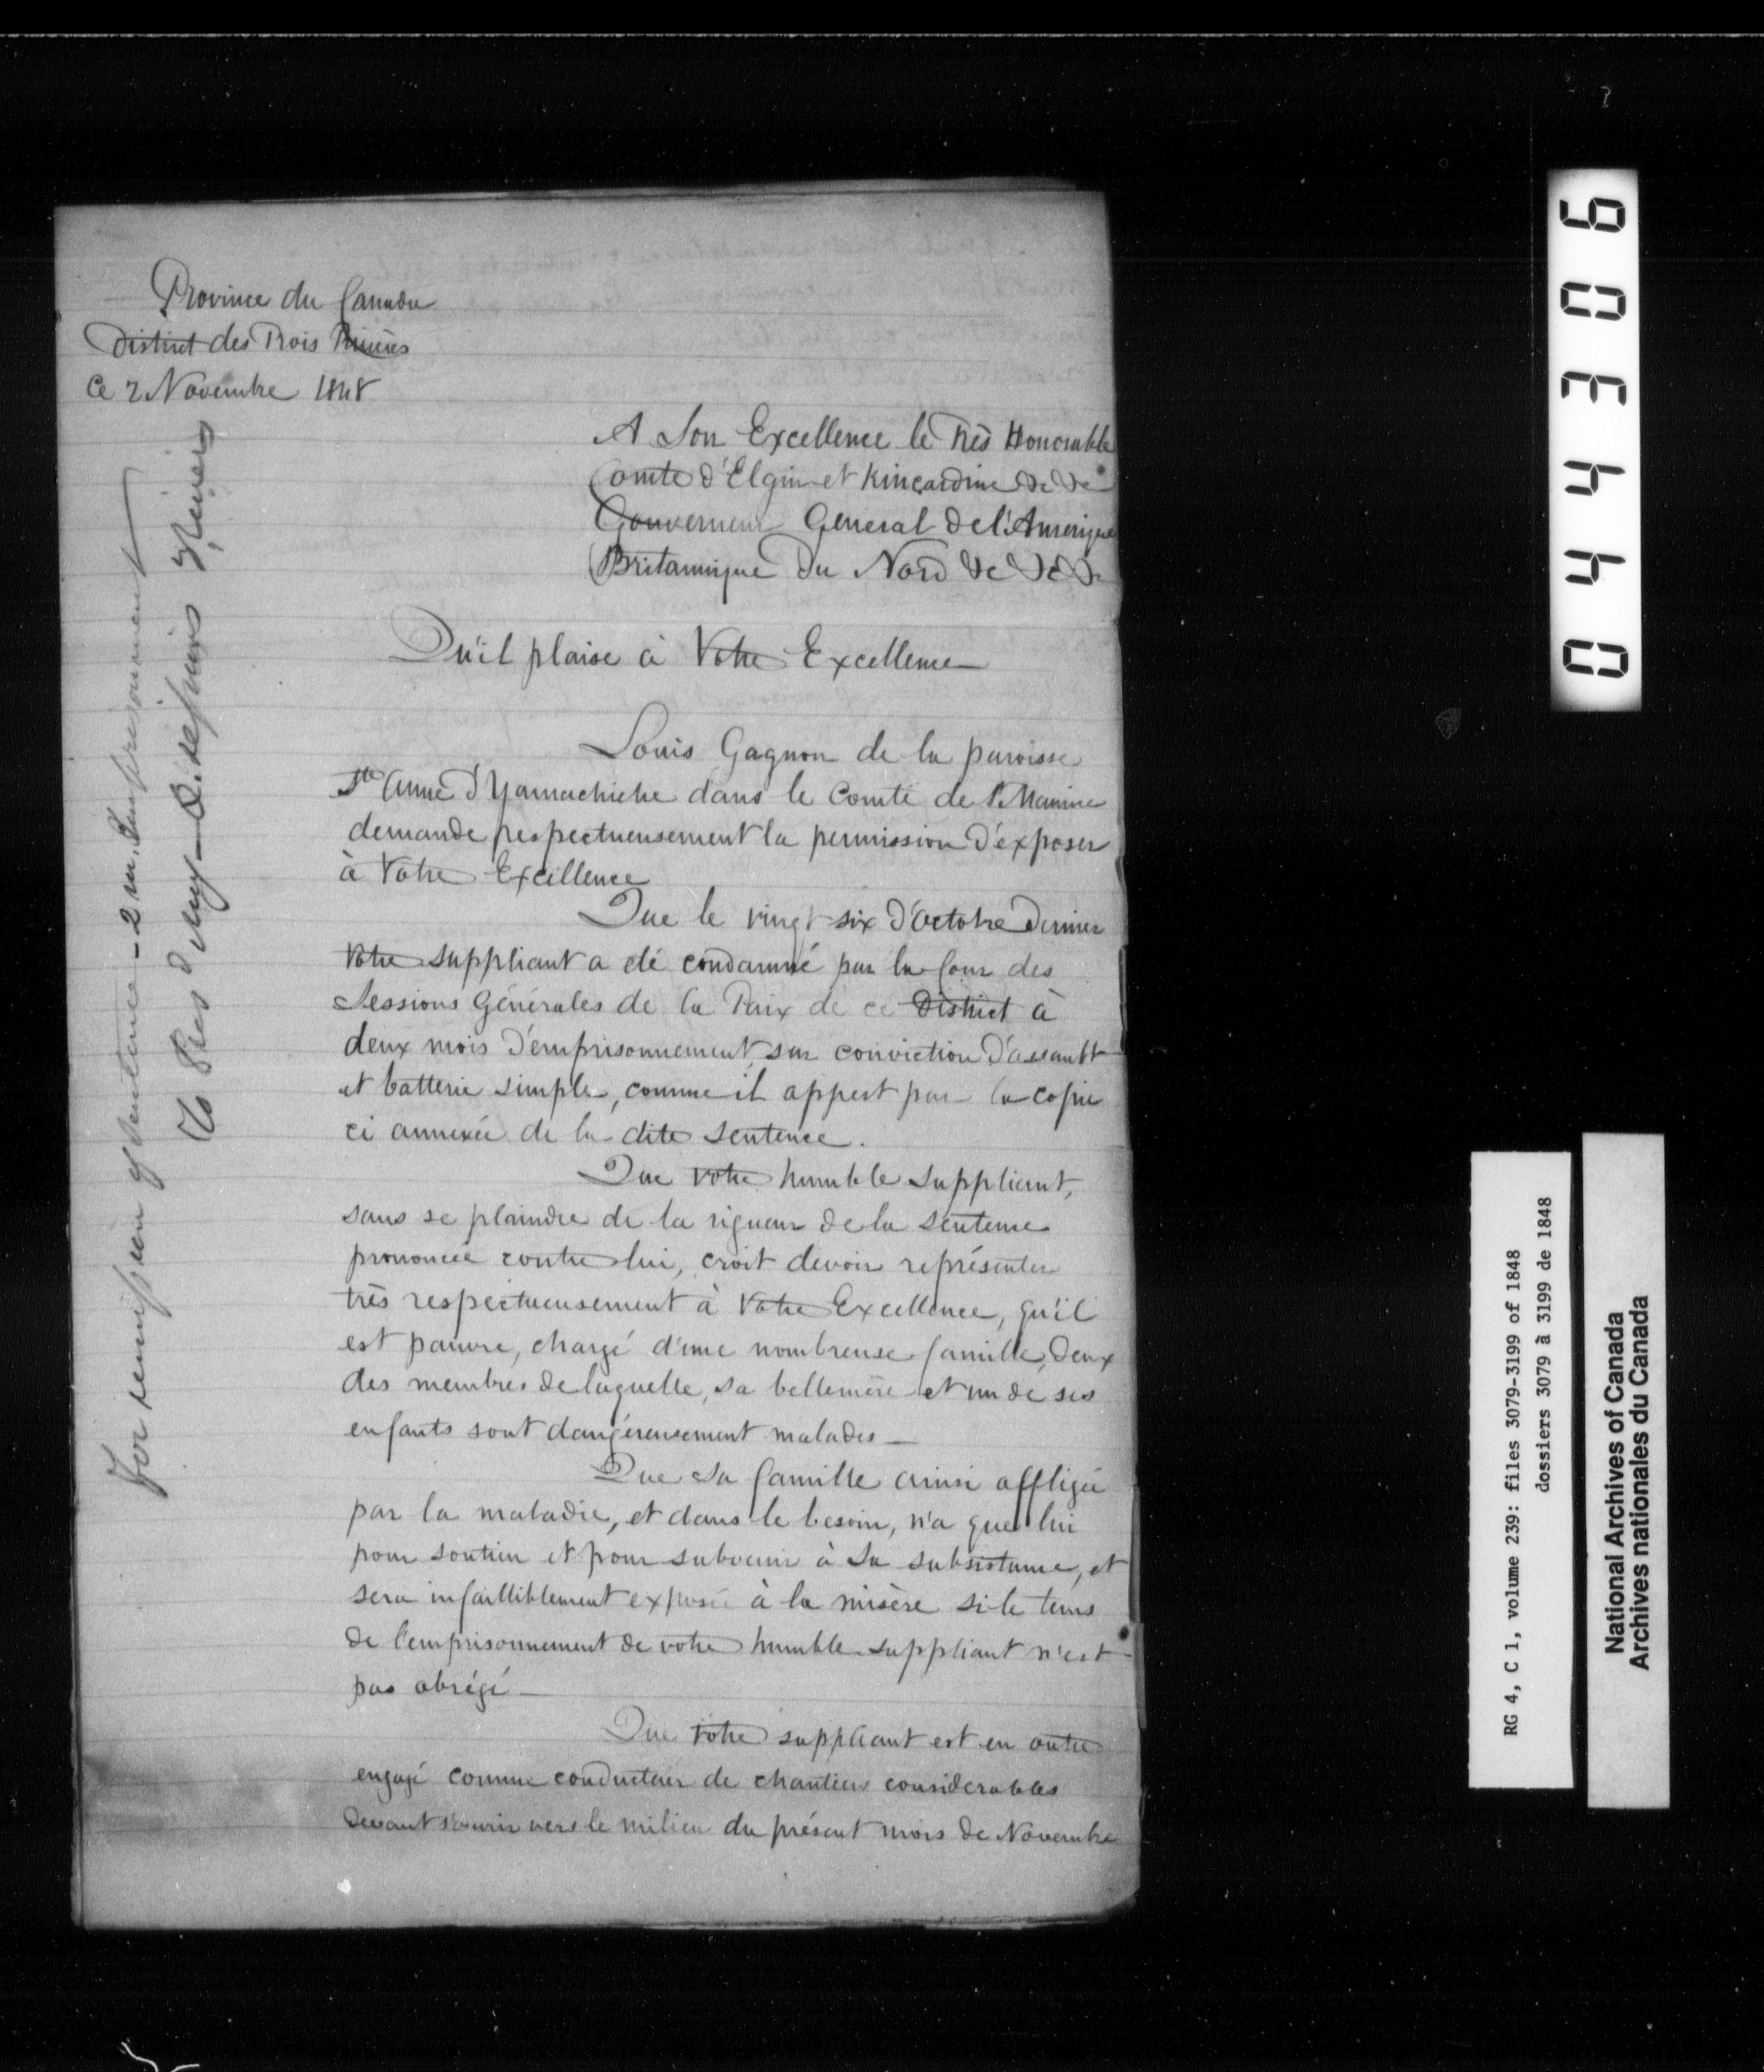 Province du Canada
District des Trois Rivières
Ce 2 Novembre 1848
A Son Excellence le très Honorable
Comte d'Elgin et Kincardine &c &c
Gouverneur General de l'Amerique
Britannique du Nord &c &c &c
Qu'il plaise à Votre Excellence
Louis Gagnon de la paroisse
Ste Anne d'Yamachiche dans le Comté de St Maurice
demande respectueusement la permission d'exposer
à Votre Excellence
Que le vingt six d'Octobre dernier
Votre suppliant a été condamné par la Cour des
Sessions Générales de la Paix de ce District à
deux mois d'emprisonnement, sur conviction d'assault
et batterie simple, comme il appert par la copie
ci annexée de la dite sentence.
Que votre humble suppliant,
sans se plaindre de la rigueur de la sentence
prononcée contre lui, croit devoir représenter
très respectueusement à Votre Excellence, qu'il
est pauvre, chargé d'une nombreuse famille, deux
des membres de laquelle, sa bellemère et un de ses
enfants sont dangéreusement malades —
Que sa famille ainsi affligée
par la maladie, et dans le besoin, n'a que lui
pour soutien et pour subvenir à sa subsistance, et
sera infailliblement exposée à la misère si le tems
de l'emprisonnement de votre humble suppliant n'est
pas abrégé —
Que Votre suppliant est en outre
engagé comme conducteur de chantiers considerables
devant s'ouvrir vers le milieu du présent mois de Novembre
For remission of sentence - 2 m. Imprisonment
044306
RG 4, C 1, volume 239: files 3079-3199 of 1848
dossiers 3079 à 3199 de 1848
National Archives of Canada
Archives nationales du Canada